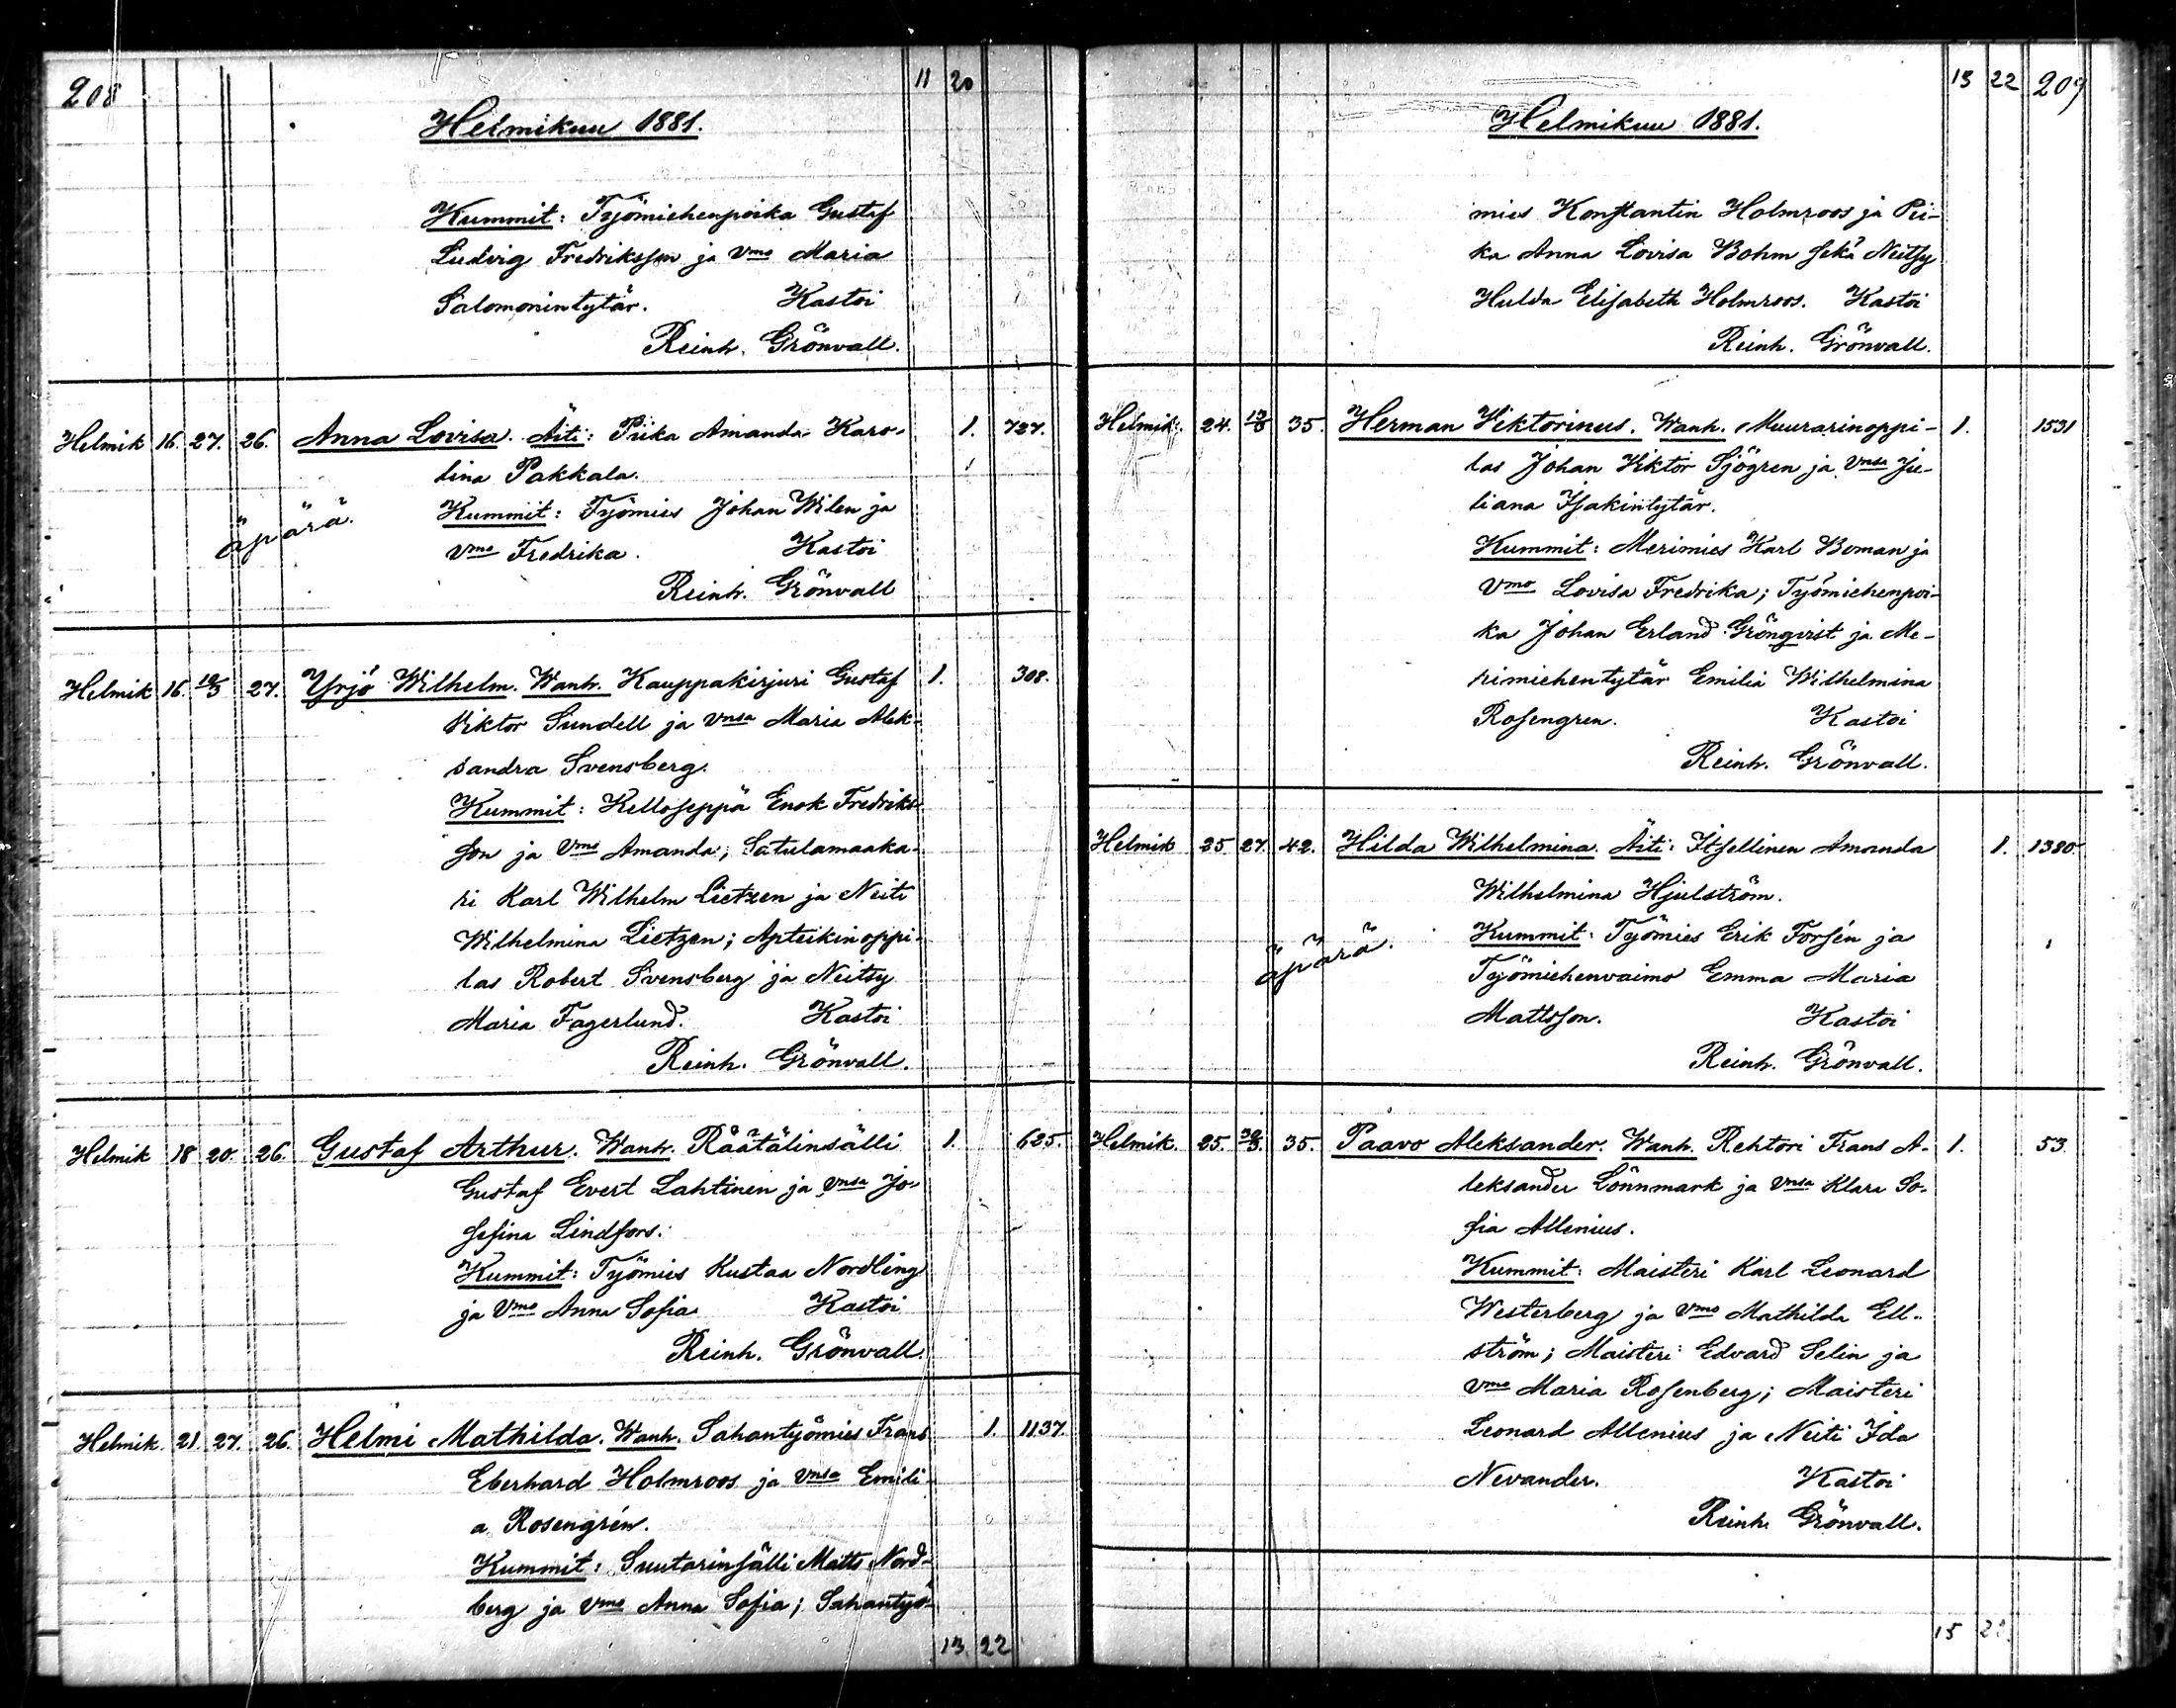 208
11 20
Helmikuu 1881.
Kummit: Työmiehenpoika Gustaf
Ludvig Fredriksson ja Vmo Maria
Salomonintytär. Kastoi
Reinh. Grönvall.
Helmik 16. 27. 26. Anna Lovisa. Äiti: Piika Amanda Karo- 1. 727.
lina Pakkala.
Kummit: Työmies Johan Wilen ja
äpärä.
Vmo Fredrika. Kastoi
Reinh. Grönvall
Helmik 16. 27. Yrjö Wilhelm. Wanh. Kauppakirjuri Gustaf 1. 308.
Viktor Sundell ja Vnsa Maria Alek-
sandra Svensberg.
Kummit: Kelloseppä Enok Fredriks-
son ja Vmo Amanda; Satulamaaka-
ri Karl Wilhelm Lietzen ja Neiti
Wilhelmina Lietzen; Apteikinoppi-
las Robert Svensberg ja Neitsy
Maria Fagerlund. Kastoi
Reinh. Grönvall.
Helmik 18 20. 26. Gustaf Arthur. Wanh. Räätälinsälli 1. 625.
Gustaf Evert Lahtinen ja Vnsa Jo-
sefina Lindfors.
Kummit: Työmies Kustaa Nordling
ja Vmo Anna Sofia Kastoi
Reinh. Grönvall.
Helmik. 21. 27. 26. Helmi Mathilda. Wanh. Sahantyömies Frans 1. 1137.
Eberhard Holmroos ja Vnsa Emili-
a Rosengrén.
Kummit: Suutarinsälli Matts Nord-
berg ja Vmo Anna Sofia; Sahantyö-
13. 22
13 22 209
Helmikuu 1881.
mies Konstantin Holmroos ja Pii-
ka Anna Lovisa Bohm sekä Neitsy
Hulda Elisabeth Holmroos. Kastoi
Reinh. Grönvall.
Helmik. 24. 13/3 35. Herman Viktorinus. Wanh. Muurarinoppi- 1. 1531
las Johan Viktor Sjögren ja Vnsa Ju-
liana Isakintytär.
Kummit: Merimies Karl Boman ja
Vmo Lovisa Fredrika; Työmiehenpoi-
ka Johan Erland Grönqvist ja Me-
rimiehentytär Emilia Wilhelmina
Rosengren. Kastoi
Reinh. Grönvall.
Helmik 25 27. 42. Hilda Wilhelmina. Äiti: Itsellinen Amanda 1. 1380
Wilhelmina Hjulström.
Kummit: Työmies Erik Forsén ja
äpärä.
Työmiehenvaimo Emma Maria
Mattsson. Kastoi
Reinh. Grönvall.
Helmik. 25. 30/3. 35. Paavo Aleksander. Wanh. Rehtori Frans A- 1. 53.
leksander Lönnmark ja Vnsa Klara So-
fia Allenius.
Kummit: Maisteri Karl Leonard
Westerberg ja Vmo Mathilda Ell-
ström; Maisteri Edvard Selin ja
Vmo Maria Rosenberg; Maisteri
Leonard Allenius ja Neiti Ida
Nevander. Kastoi
Reinh. Grönvall.
15